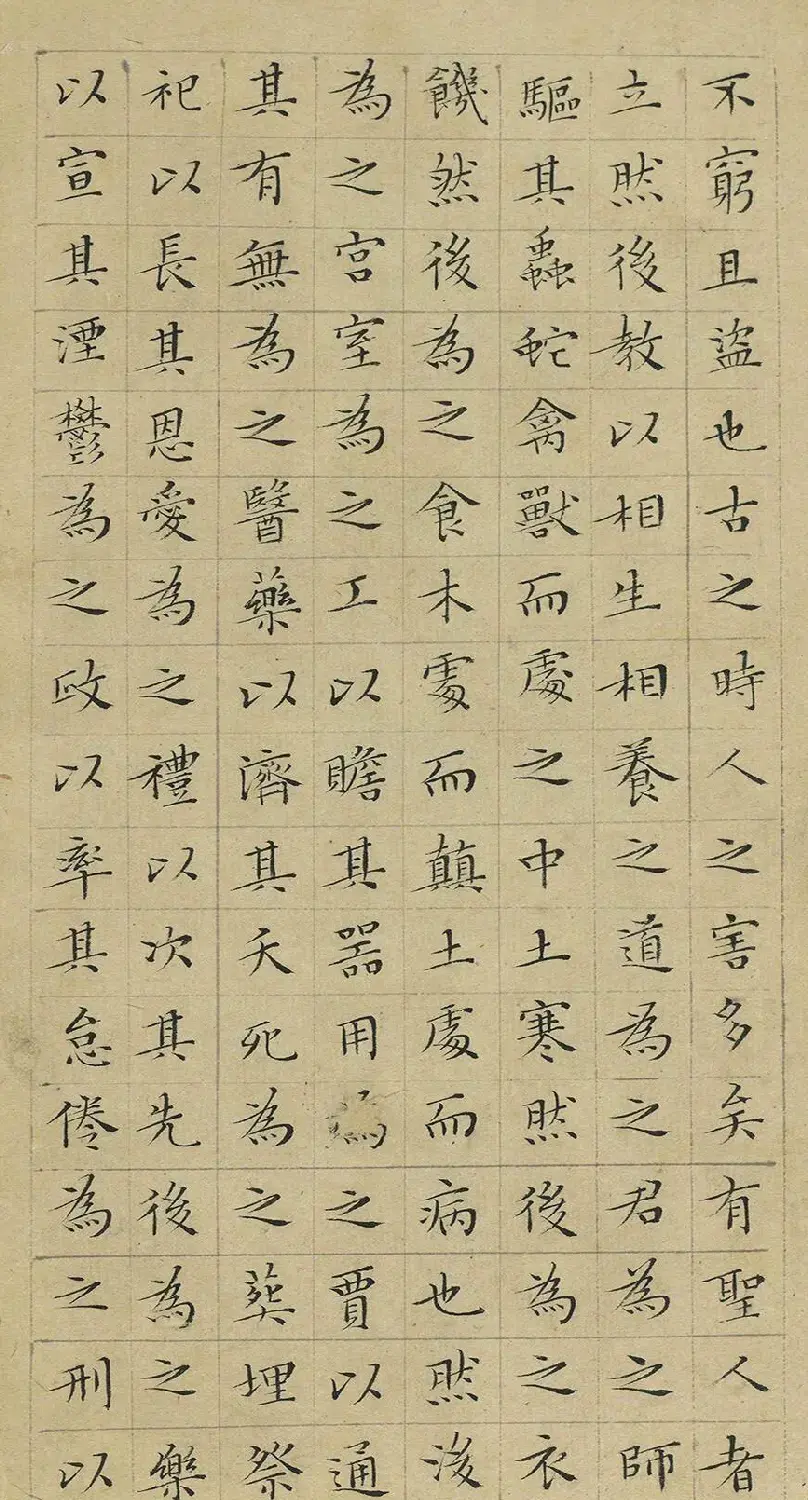 不窮且盜也古之時人之害多矣有聖人者
立然後教以相生相養之道為之君為之師
驅其蟲蛇禽獸而處之中土寒然後為之衣
饑然後為之食木處而顛土處而病也然後
為之宮室為之工以贍其器用為之賈以通
其有無為之醫藥以濟其夭死為之葬埋祭
祀以長其恩愛為之禮以次其先後為之樂
以宣其湮鬱為之政以率其怠倦為之刑以